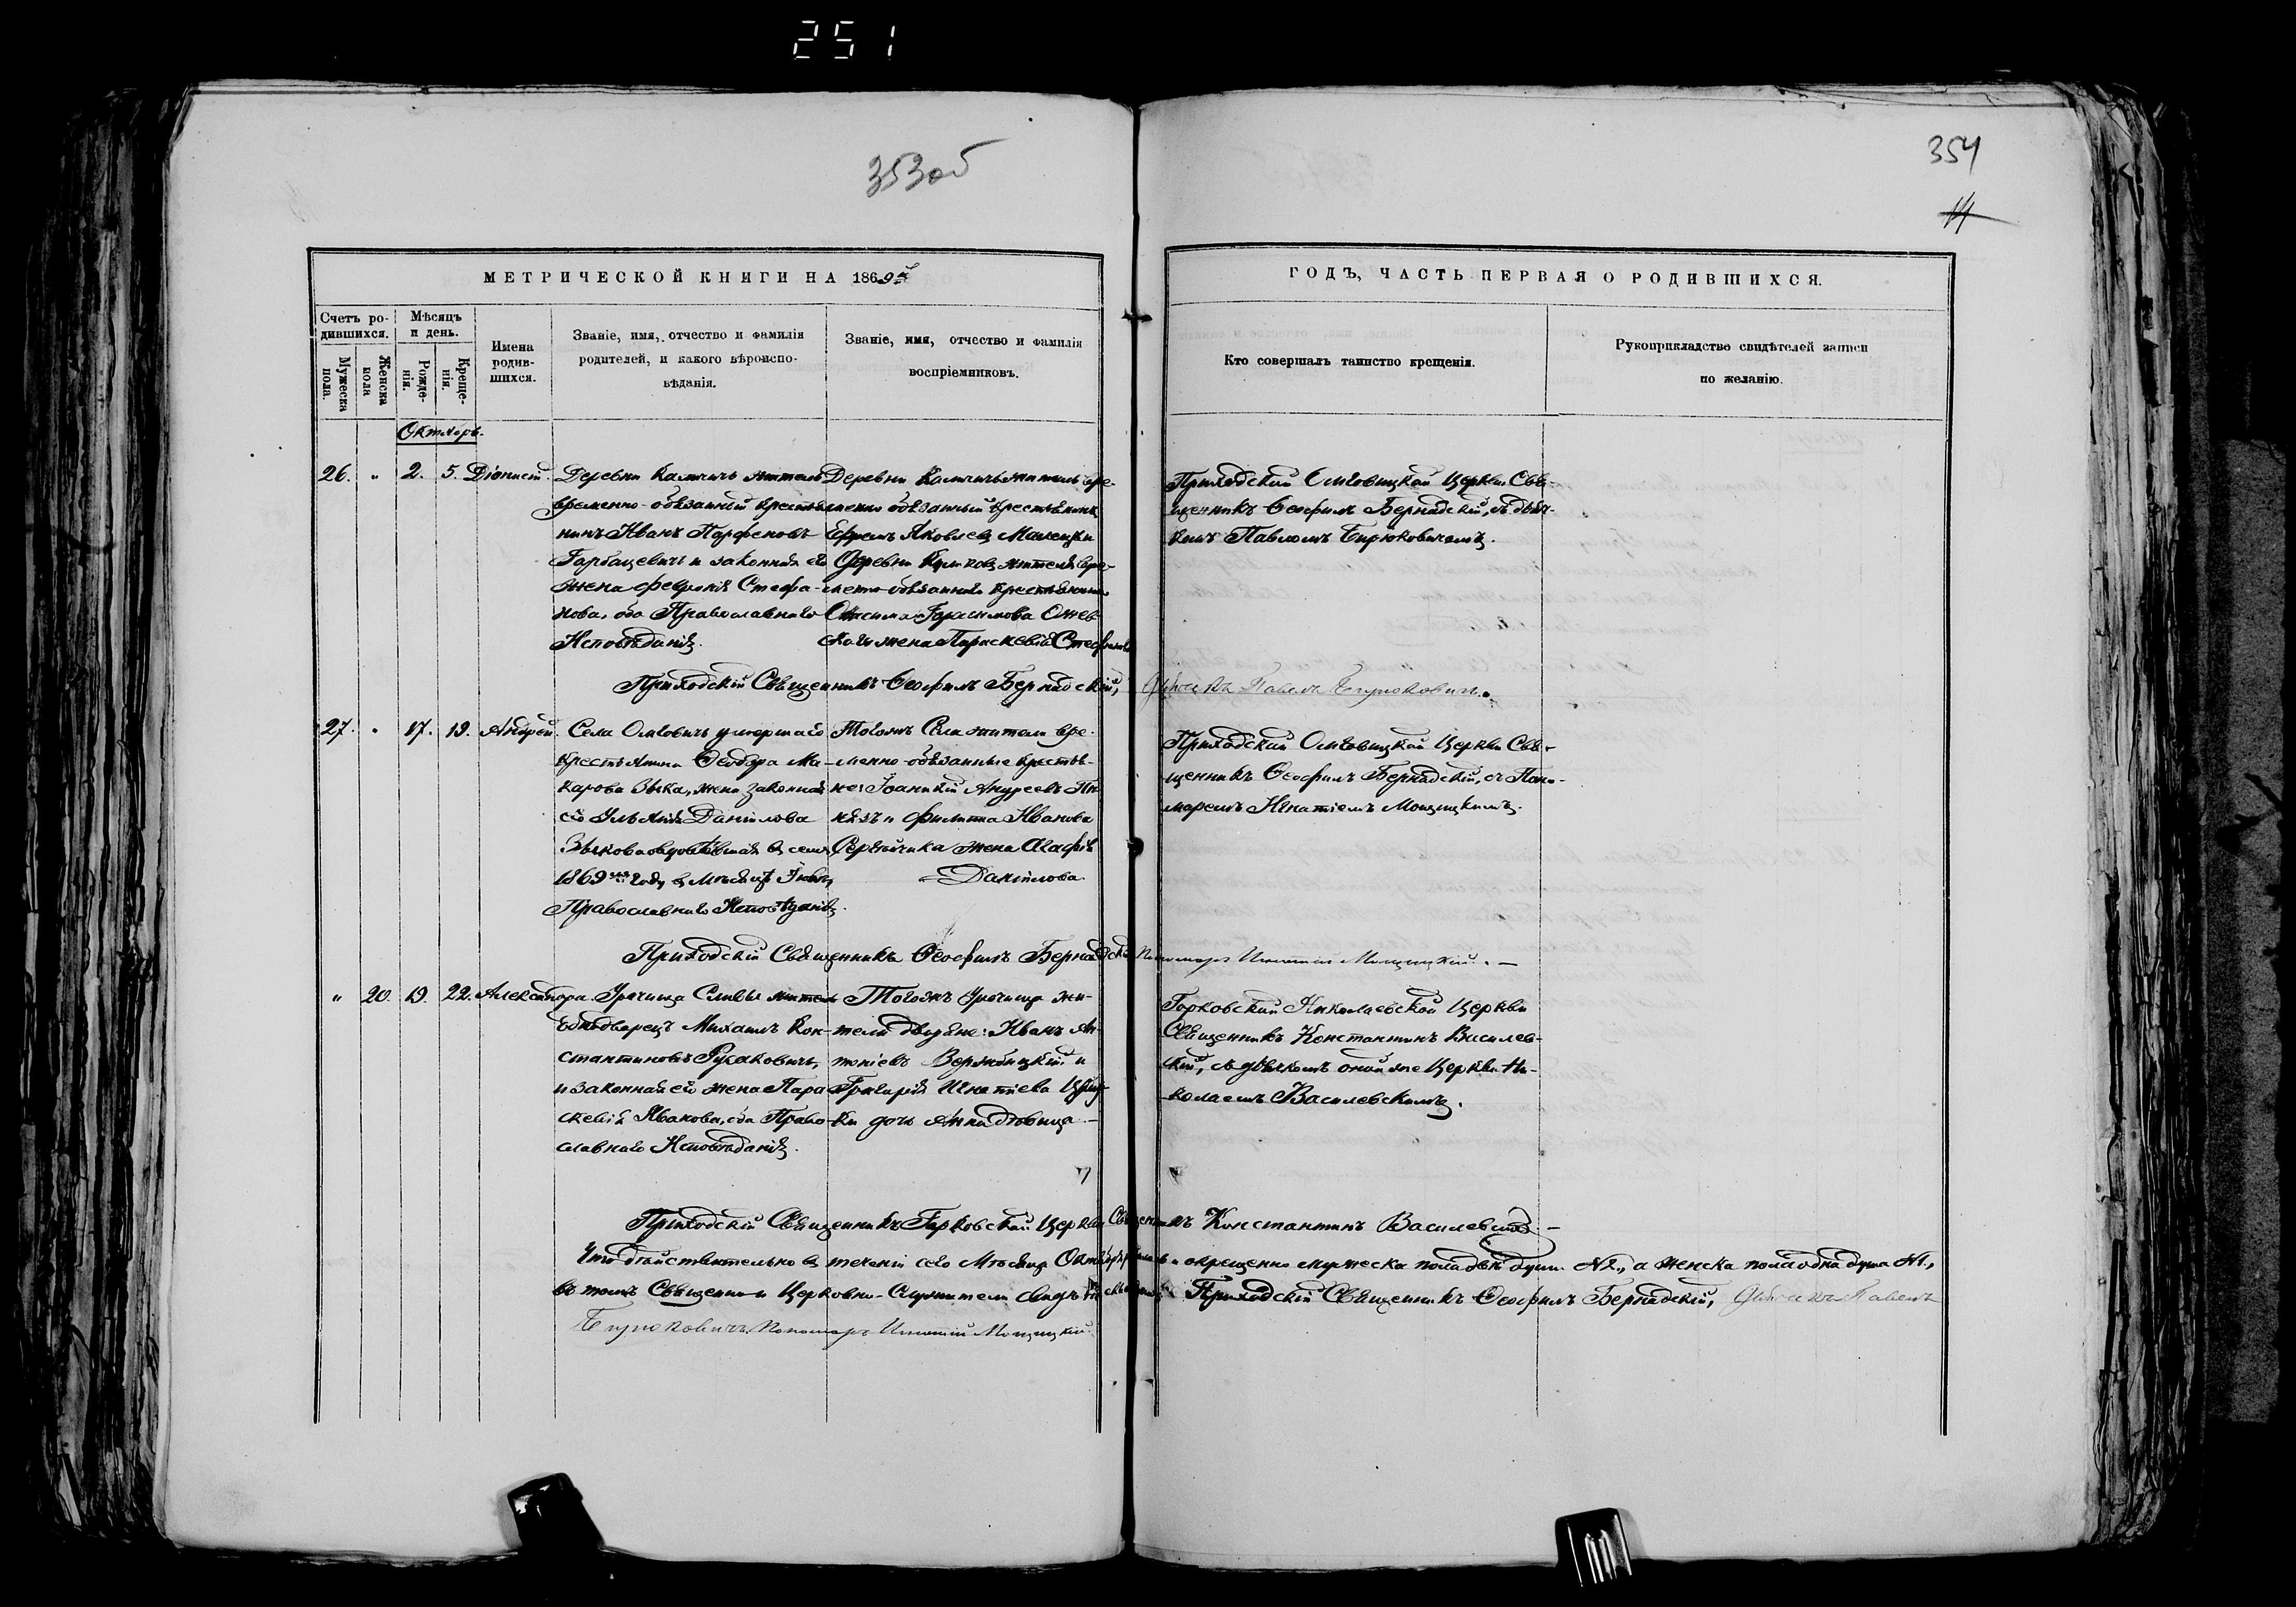 251
353об
354
14
МЕТРИЧЕСКОЙ КНИГИ НА 1869й
ГОДЪ, ЧАСТЬ ПЕРВАЯ О РОДИВШИХСЯ.
Счетъ ро-
дившихся.
Мужеска пола.
Женска пола
Мѣсяцъ
и день.
Рожде-
нія.
Креще-
нія.
Имена
родив-
шихся.
Званіе, имя, отчество и фамилія
родителей, и какого вѣроиспо-
вѣданія.
Званіе, имя, отчество и фамилія
воспріемниковъ.
Кто совершалъ таинство крещенія.
Рукоприкладство свидѣтелей записи
по желанію.
Октябрь.
26. " 2. 5. Діонисій.
Деревни житель
временно-обязанный крестья-
нинъ Иванъ Парфеновъ
Горбацевичъ и законная его
жена Февронія Стефа-
нова, оба Православнаго
Исповѣданія.
Деревни житель вре-
менно обязанный крестьянинъ
Ефремъ Яковлевъ
Деревни жителя вре-
менно-обязаннаго крестьянина
Герасимова
жена Параскевія Стефанова
Приходскій Церкви Свя-
щенникъ Ѳеофилъ Бернадскій, съ дьяч-
комъ Павломъ Бирюковичемъ.
Приходскій Священникъ Ѳеофилъ Бернадскій, Дьячекъ Павелъ Бирюковичъ.
27. " 17. 19. Андрей.
Села умершаго
крестьянина Ѳеодора Ма-
карова Зыка, жена законная
его Ульянія Даніилова
Зыкова овдовѣвшая въ семъ
1869мъ году въ мѣсяцѣ
Православнаго Исповѣданія.
Тогожъ Села жители вре-
менно-обязанные крестья-
не: Іоанникій Андреевъ
и Филиппа Иванова
жена Агафія
Даніилова
Приходскій Церкви Свя-
щенникъ Ѳеофилъ Бернадскій, съ Поно-
маремъ Игнатіемъ Мощицкимъ.
Приходскій Священникъ Ѳеофилъ Бернадскій Пономарь Игнатій Мощицкій.
" 20. 19. 22. Александра.
Урочища Сливы житель
однодворецъ Михаилъ Кон-
стантиновъ Рукаковичъ,
и законная его жена Пара-
скевія Иванова, оба Право-
славнаго Исповѣданія.
Тогожъ Урочища жи-
тели дворяне: Иванъ Ан-
тоніевъ Вержбицкій и
Григорія Игнатіева
дочь Анна дѣвица
Горковской Николаевской Церкви
Священникъ Константинъ Василев-
скій, съ дьячкомъ оной же Церкви Ни-
колаемъ Василевскимъ.
Приходскій Священникъ Горковской Церкви Священникъ Константинъ Василевскій
Что дѣйствительно въ теченіи сего Мѣсяца Октября и окрещено мужеска пола двѣ души №2., а женска пола одна душа №1.,
въ томъ Священно и Церковно-Служители Приходскій Священникъ Ѳеофилъ Бернадскій, Дьячекъ Павелъ
Бирюковичъ, Пономарь Игнатій Мощицкій.